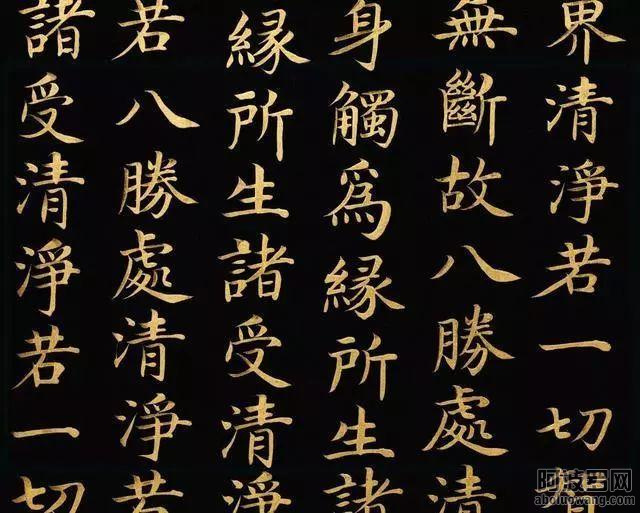 界清淨若一切
無斷故八勝處清
身觸爲緣所生諸
緣所生諸受清淨
若八勝處清淨若
諸受清淨若一切
阿波罗网
aboluowang.com